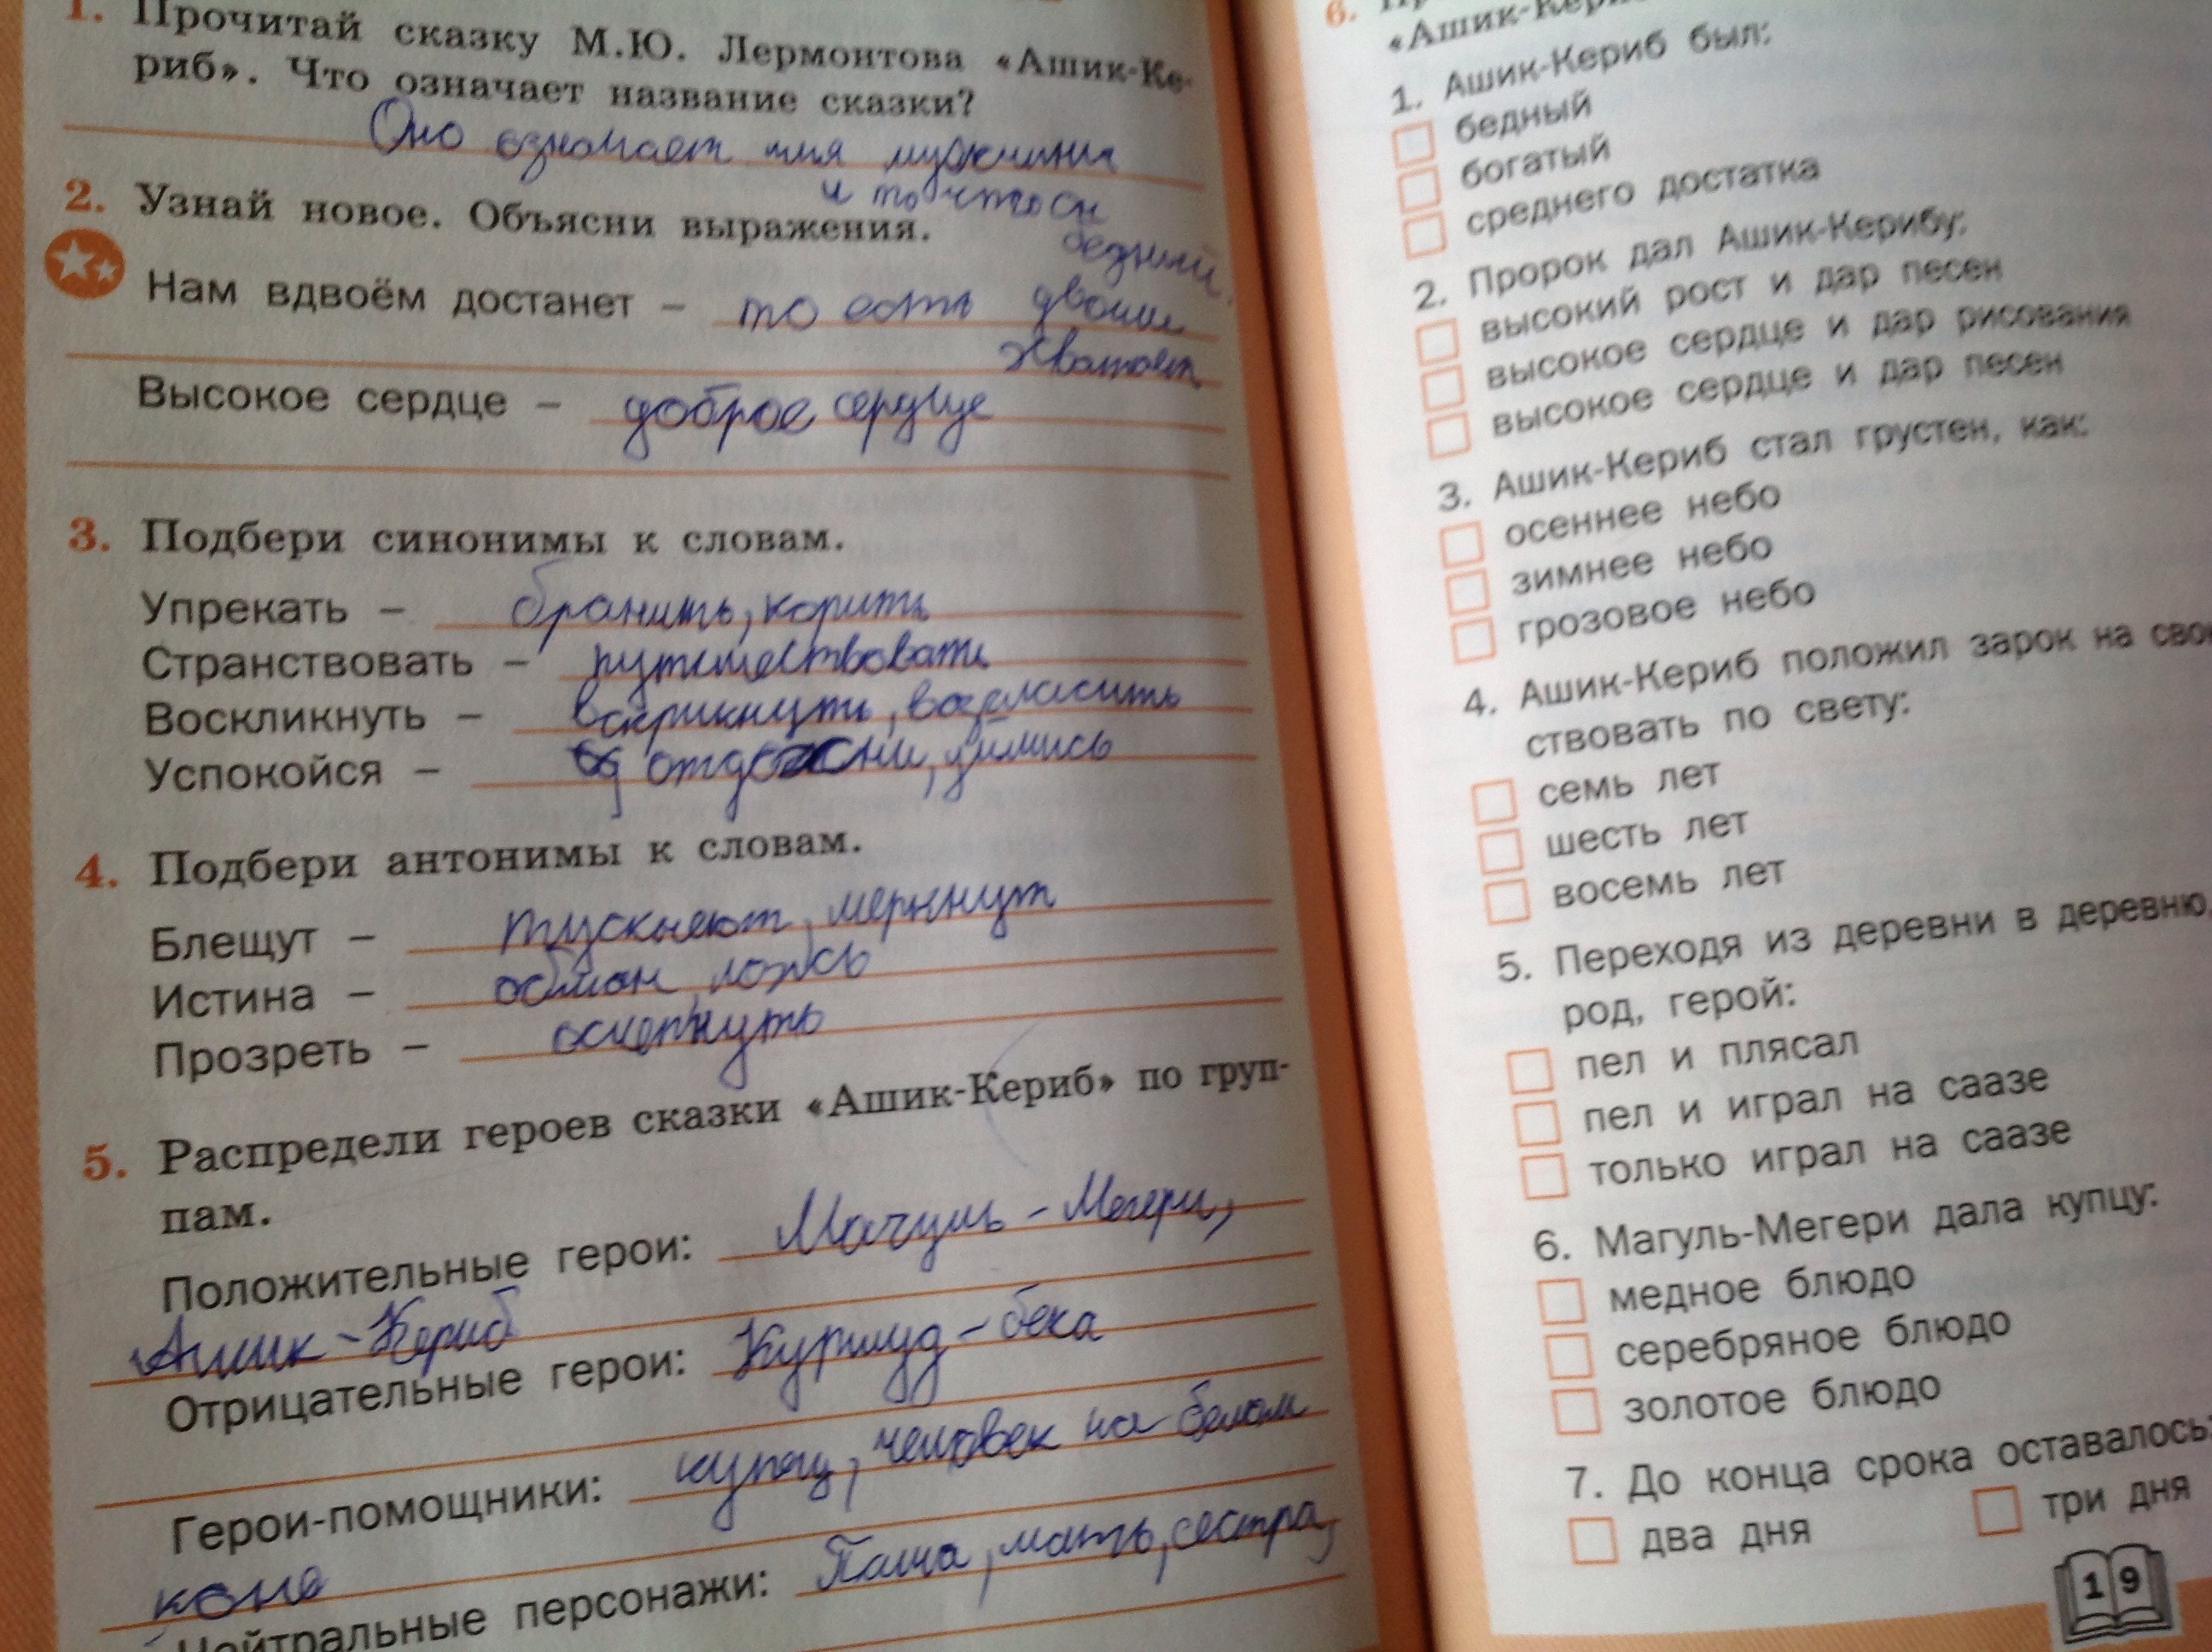 1. Прочитай сказку М.Ю. Лермонтова «Ашик-Ке-
риб». Что означает название сказки?
Оно означает имя мужчины
и то что он
бедный.
2. Узнай новое. Объясни выражения.
Нам вдвоём достанет – то есть двоим
хватает
Высокое сердце – доброе сердце
3. Подбери синонимы к словам.
Упрекать – бранить, корить
Странствовать – путешествовать
Воскликнуть – вскрикнуть, возгласить
Успокойся – отдохни, уймись
4. Подбери антонимы к словам.
Блещут – тускнеют, меркнут
Истина – обман, ложь
Прозреть – ослепнуть
5. Распредели героев сказки «Ашик-Кериб» по груп-
пам.
Положительные герои: Магуль-Мегери,
Ашик-Кериб
Отрицательные герои: Куршуд-бека
Герои-помощники: купец, человек на белом
коне
Нейтральные персонажи: Паша, мать, сестра,
6.
«Ашик-Кериб
1. Ашик-Кериб был:
бедный
богатый
среднего достатка
2. Пророк дал Ашик-Керибу:
высокий рост и дар песен
высокое сердце и дар рисования
высокое сердце и дар песен
3. Ашик-Кериб стал грустен, как:
осеннее небо
зимнее небо
грозовое небо
4. Ашик-Кериб положил зарок на сво
ствовать по свету:
семь лет
шесть лет
восемь лет
5. Переходя из деревни в деревню,
род, герой:
пел и плясал
пел и играл на саазе
только играл на саазе
6. Магуль-Мегери дала купцу:
медное блюдо
серебряное блюдо
золотое блюдо
7. До конца срока оставалось:
два дня три дня
19